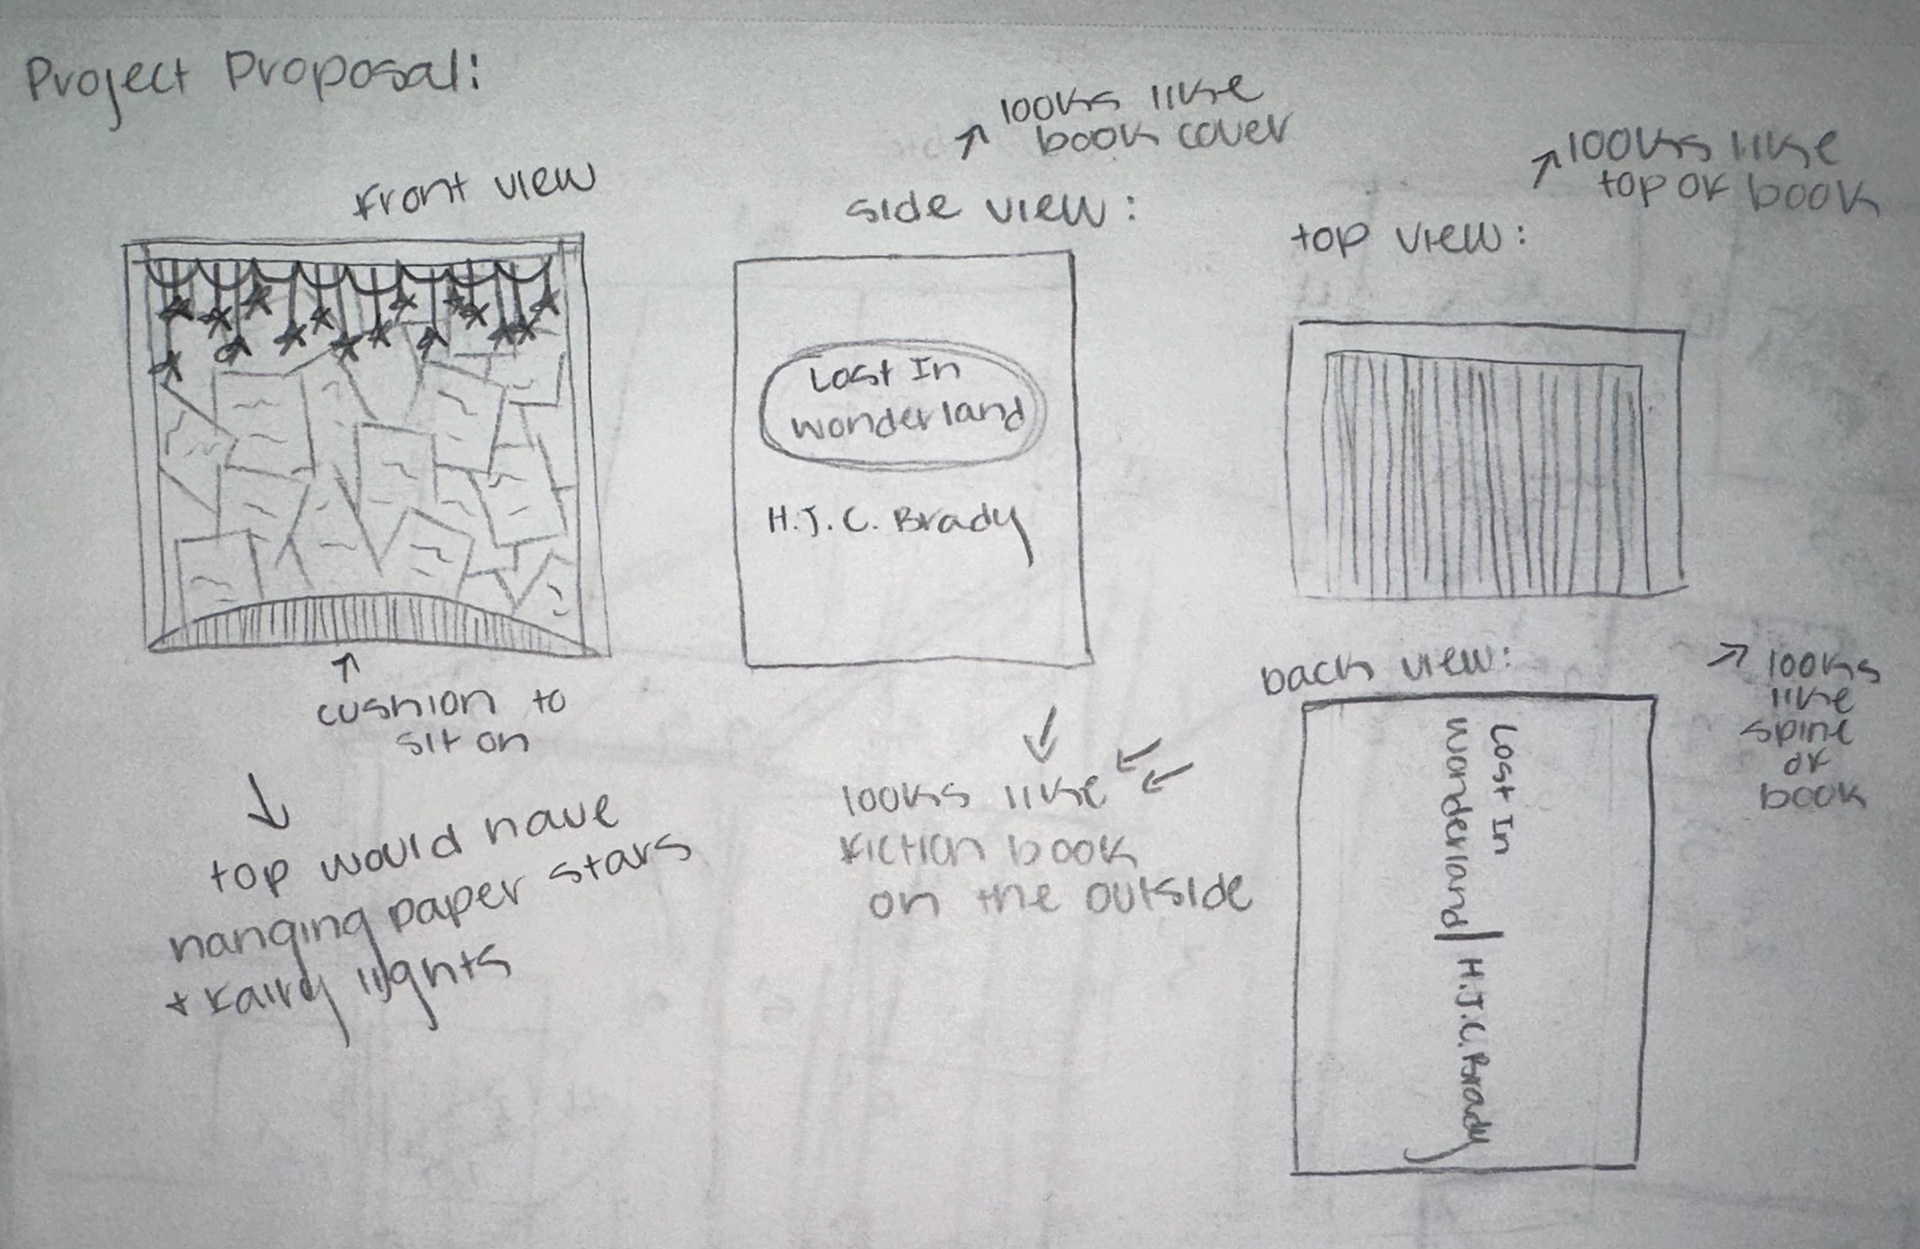 Project Proposal:
front view
cushion to
sit on
top would have
hanging paper stars
+ fairy lights
looks like
book cover
side view:
Lost In
Wonderland
H.J.C. Brady
looks like
fiction book
on the outside
looks like
top of book
top view:
back view:
looks
like
spine
of
book
Lost In
Wonderland | H.J.C. Brady